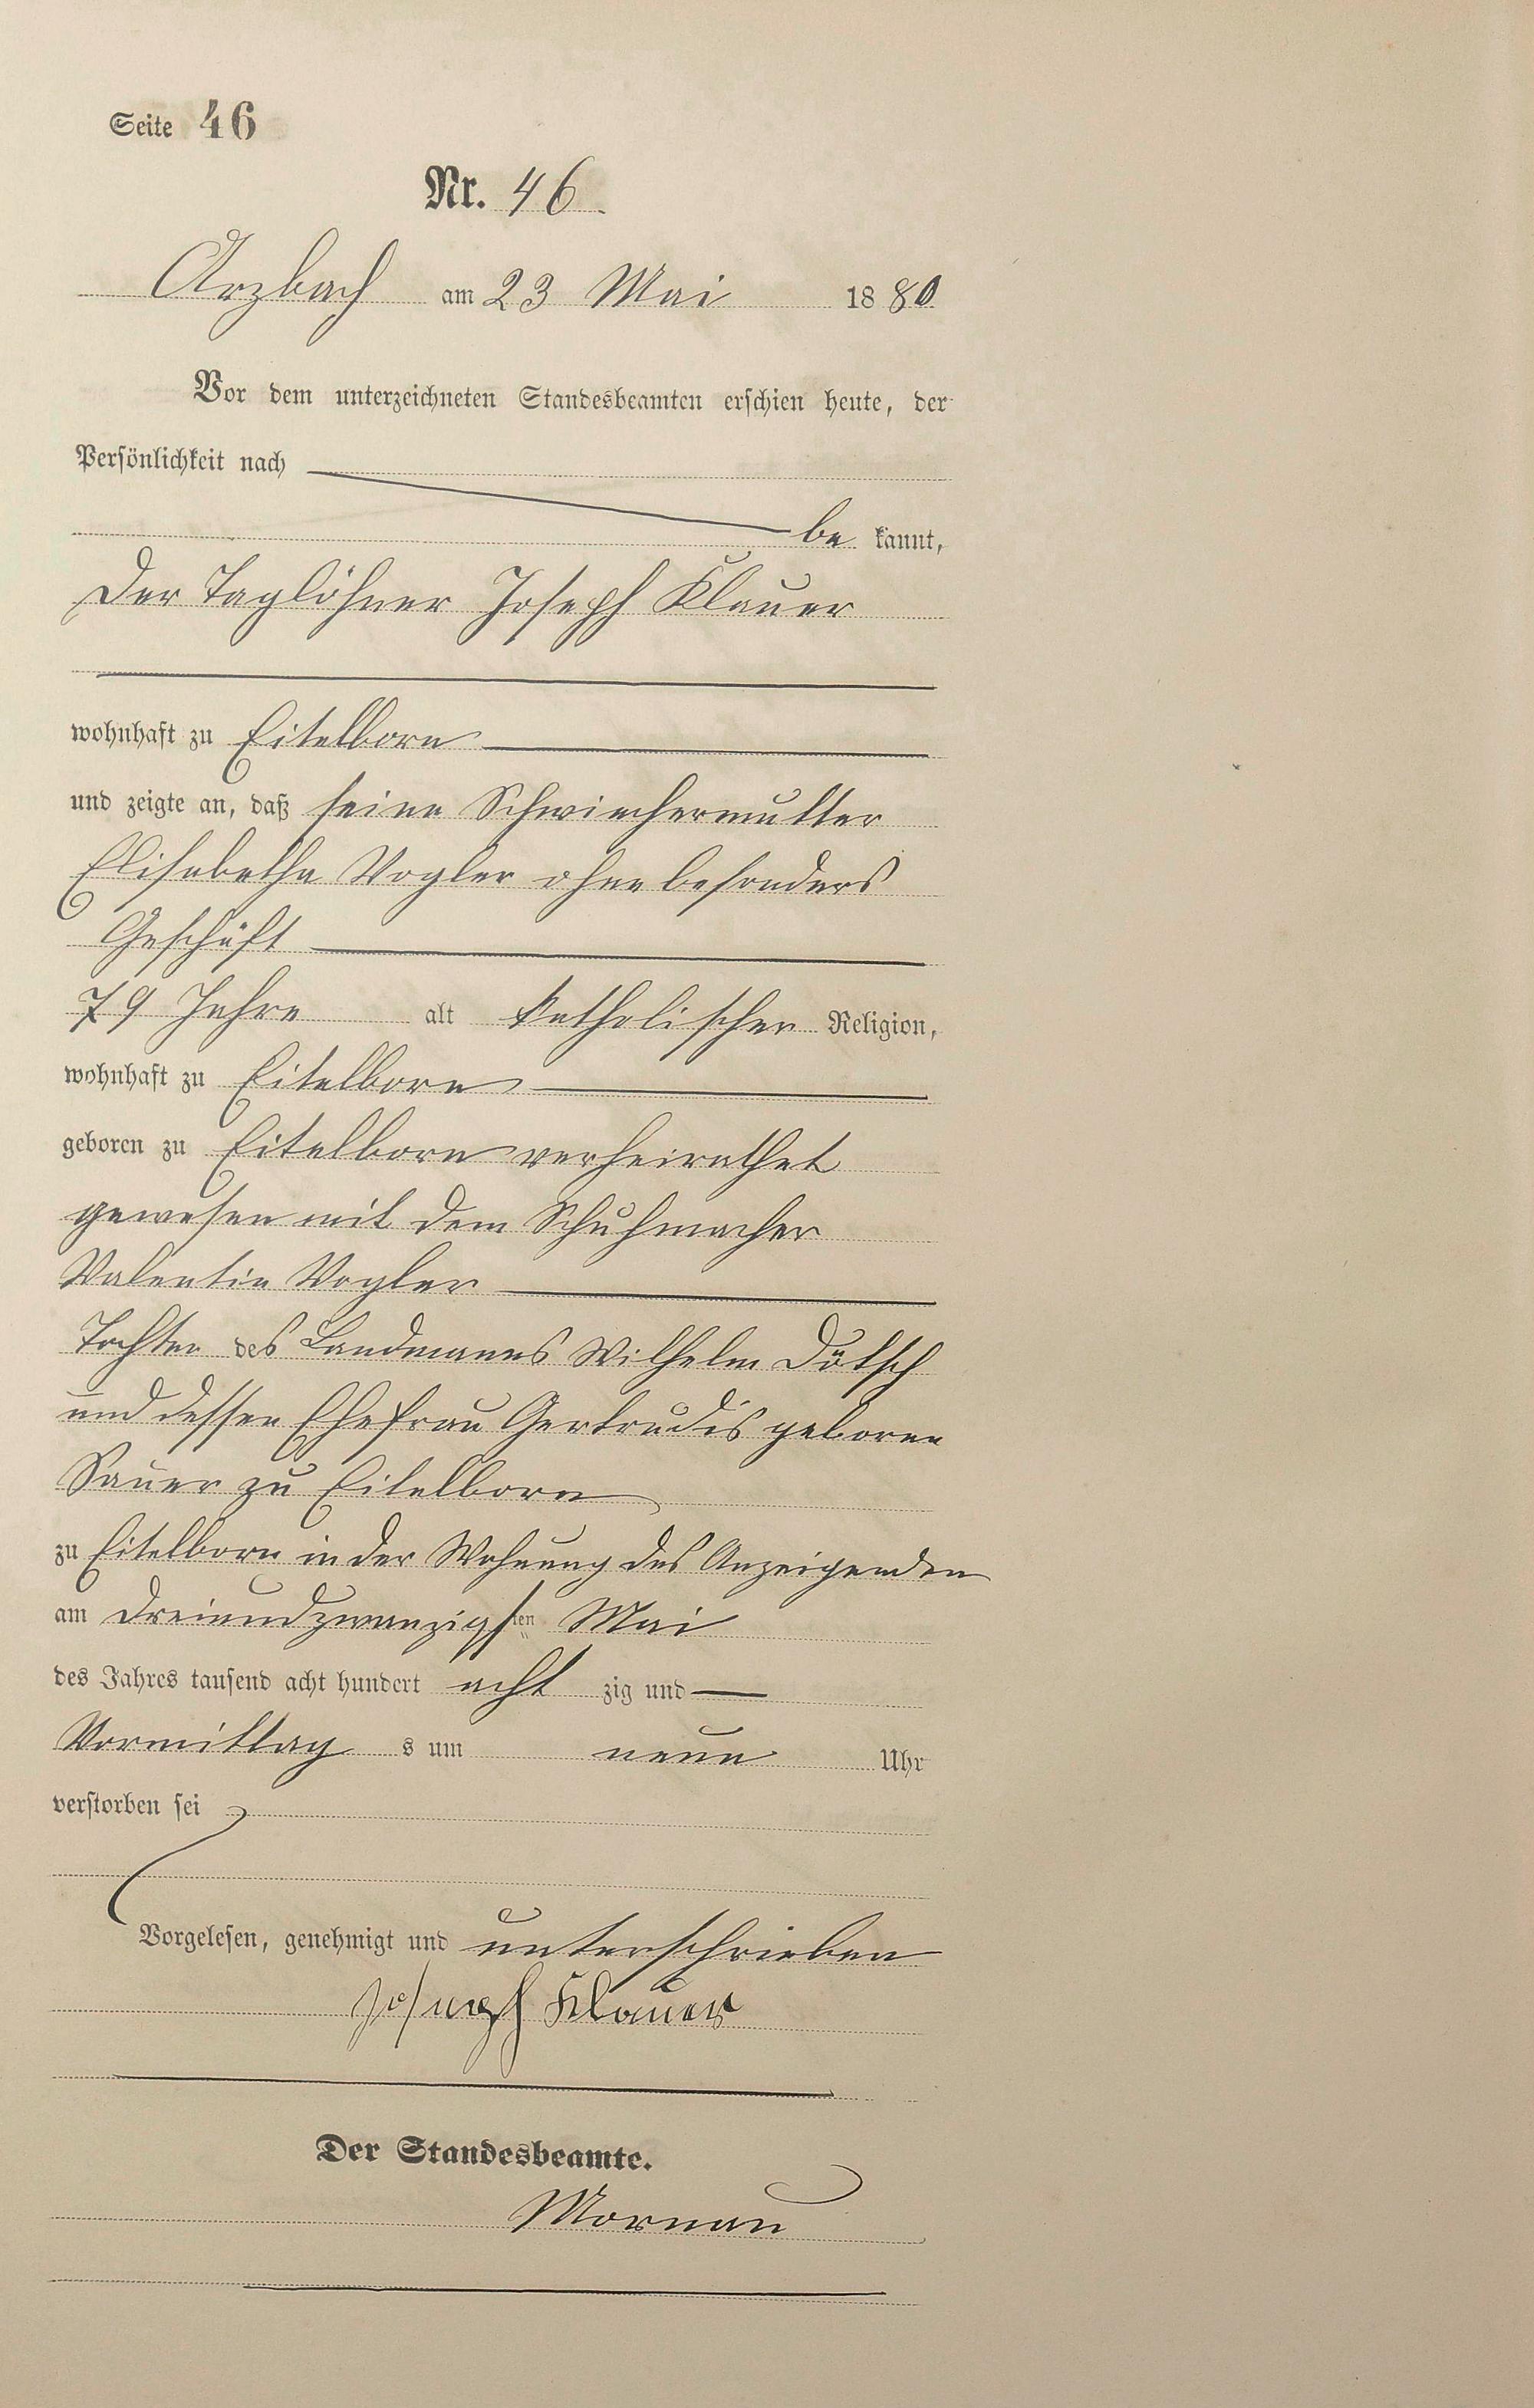 Seite 46
Nr. 46
Arzbach am 23 Mai 1880
Vor dem unterzeichneten Standesbeamten erschien heute, der
Persönlichkeit nach
be kannt,
der Taglöhner Joseph Klauer
wohnhaft zu Eitelborn
und zeigte an, daß seine Schwiehermutter
Elisabetha Vogler ohne besonders
Geschäft
79 Jahre alt katholischer Religion,
wohnhaft zu Eitelborn
geboren zu Eitelborn verheirathet
gewesen mit dem Schuhmacher
Valentin Vogler
Tochter des Landmanns Wilhelm Dötsch
und dessen Ehefrau Gertrudis geborne
Sauer zu Eitelborn
zu Eitelborn in der Wohnung des Anzeigenden
am dreiundzwanzigsten Mai
des Jahres tausend acht hundert acht zig und
Vormittag s um neun Uhr
verstorben sei
Vorgelesen, genehmigt und unterschrieben
Joseph Klauer
Der Standesbeamte.
Mornau